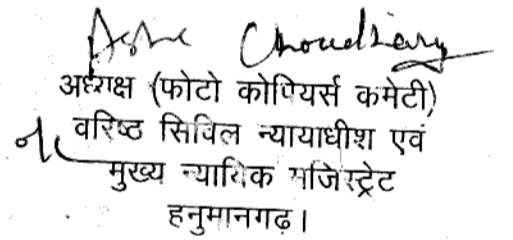 Choudhary
अध्यक्ष (फोटो कोपियर्स कमेटी)
वरिष्ठ सिविल न्यायाधीश एवं
मुख्य न्यायिक मजिस्ट्रेट
हनुमानगढ़।